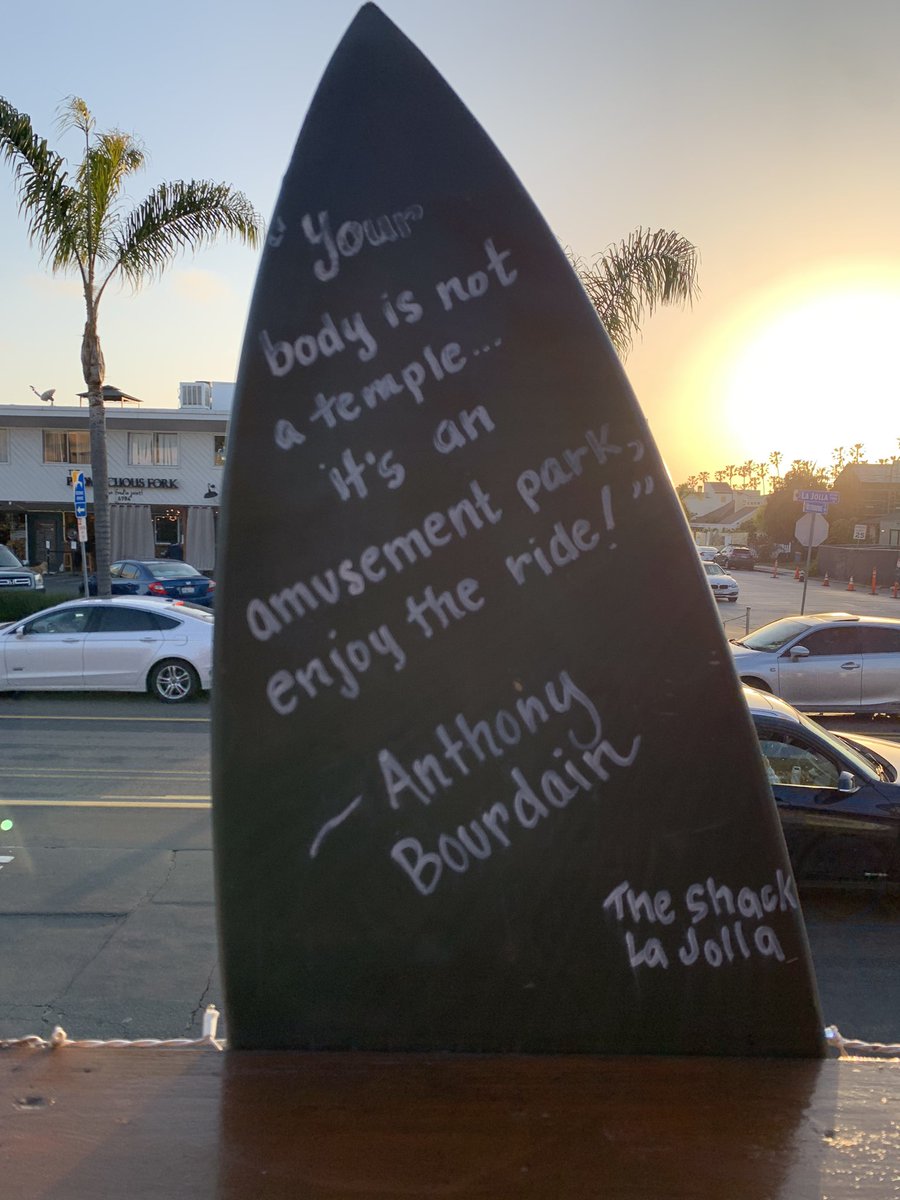 "Your
body is not
a temple...
it's an
amusement park,
enjoy the ride!"
— Anthony
Bourdain
The shack
La Jolla
FORK
LA JOLLA
25